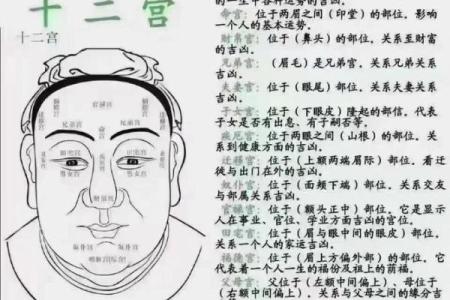 十二宫
十二宫
官禄宫
兄弟宫
兄弟宫
命宫
田宅宫
男女宫
男女宫
财帛宫
奴仆宫
奴仆宫
的一生中各种运势的吉凶。
命宫：位于两眉之间（印堂）的部位，影响
一个人的基本运势。
财帛宫：位于（鼻头）的部位，关系至财富
的吉凶。
兄弟宫：（眉毛）是兄弟宫，关系兄弟关系
吉凶。
夫妻宫：位于（眼尾）部位，关系夫妻关系
吉凶。
子女宫：位于（下眼皮）隆起的部信，代表
子女是否有出息、有子嗣否等。
疾厄宫：位于两眼之间（山根）的部位，关
系到健康方面的吉凶。
迁移宫：位于（上额两端眉际）部位，看迁
徙与出门在外的吉凶。
奴仆宫：位于（面颊下端）部位，关系交友
与部属关系吉凶。
官禄宫：位于（额头正中）部位，它是显示
人在事业、官位、学业方面吉凶的宫位。
田宅宫：位于（眉与眼中间的眼皮）部位，
关系一个人的家运吉凶。
福德宫：位于（眉上方偏外部）的部位，它
代表着一个人一生的福份及祖上的荫福。
父母宫：父位于（左额中间偏上）、母位于
（右额中间偏上）关系与父母之间的缘分吉